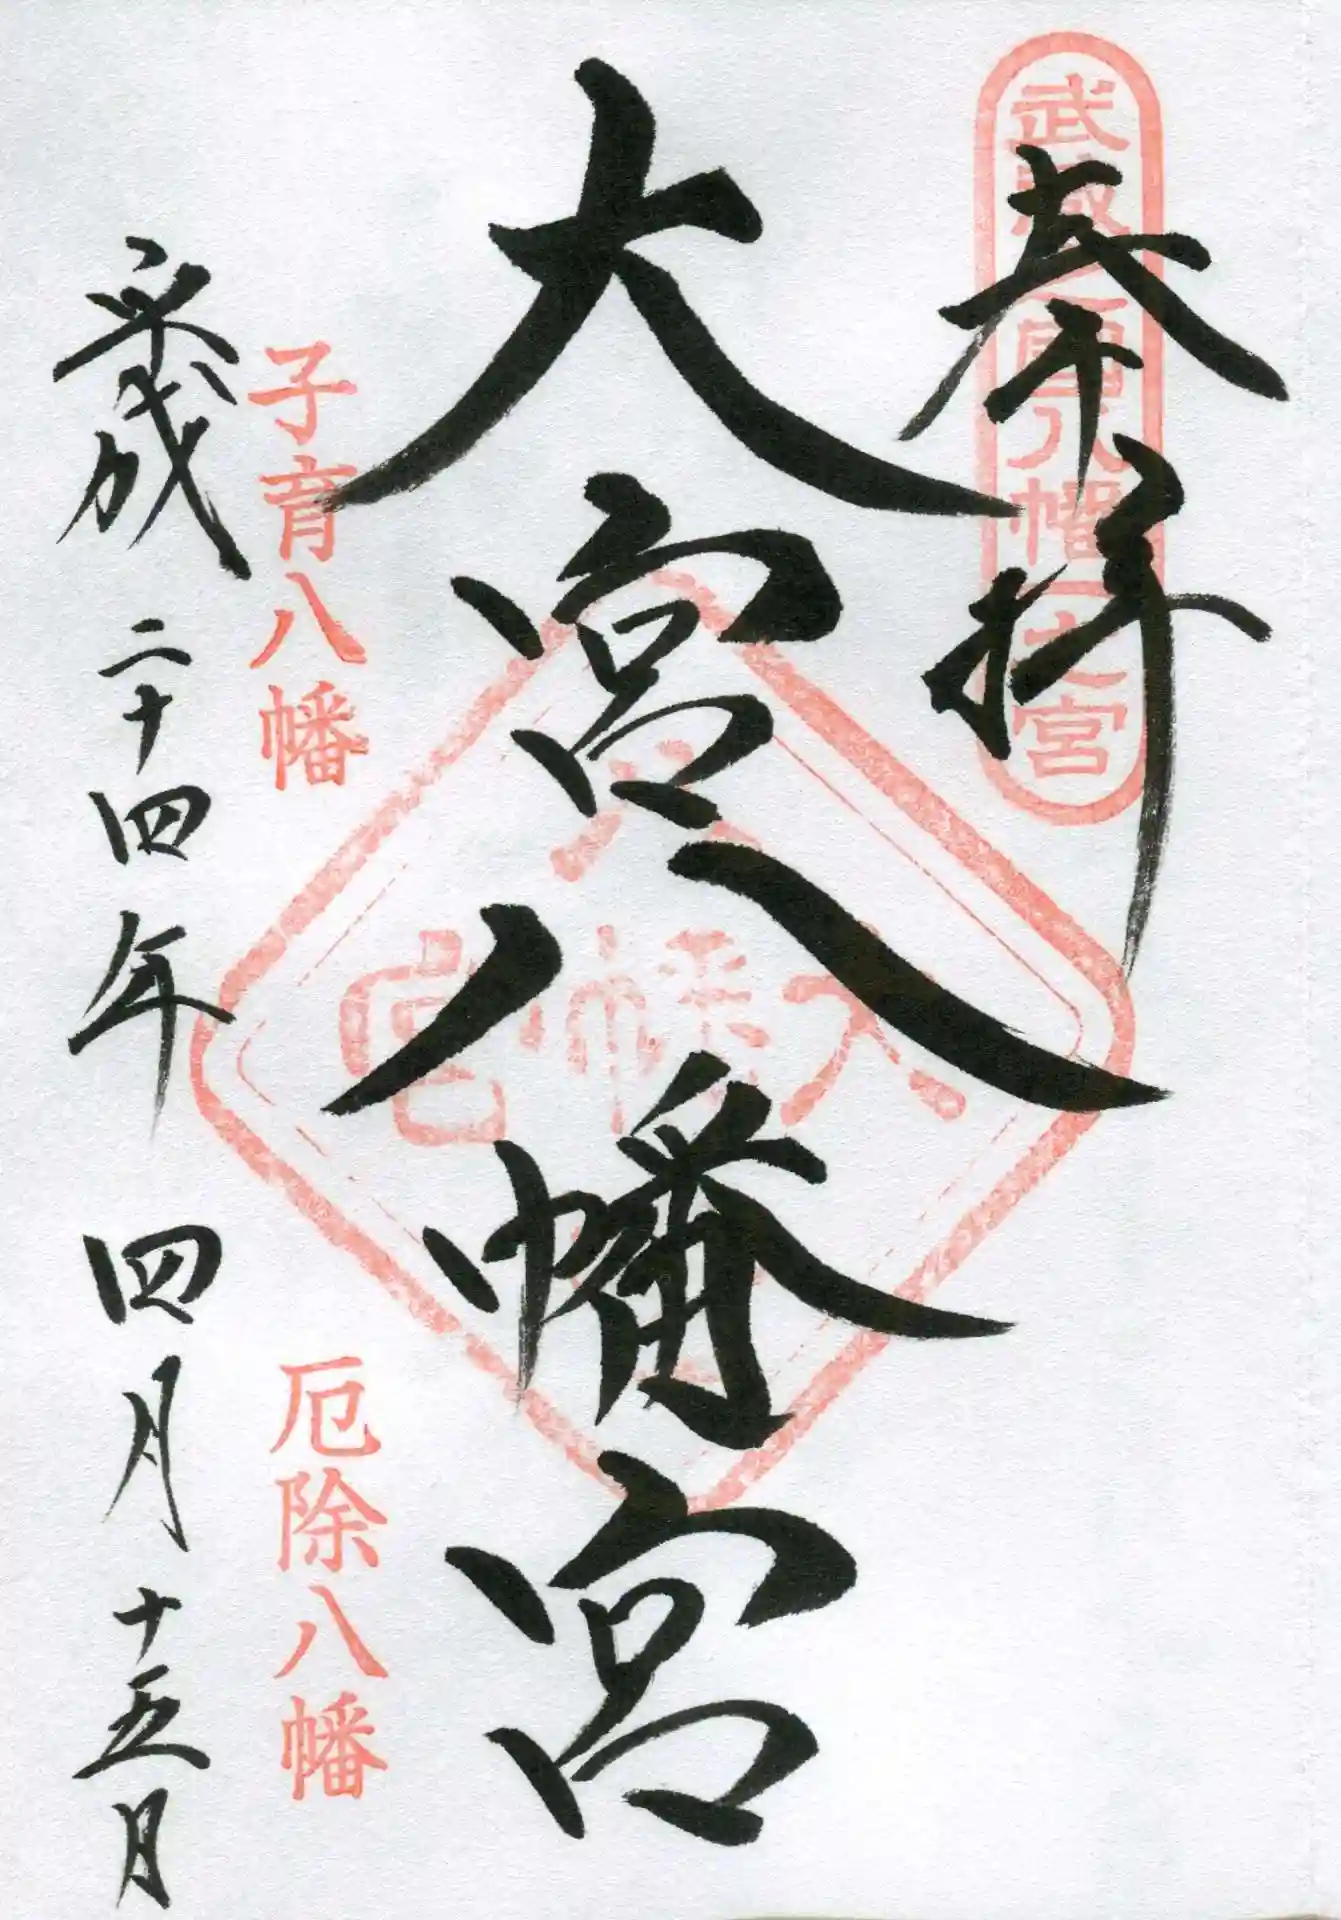 武蔵国八幡一之宮
奉拝
大宮八幡宮
大宮八幡宮
子育八幡
厄除八幡
平成二十四年四月十五日